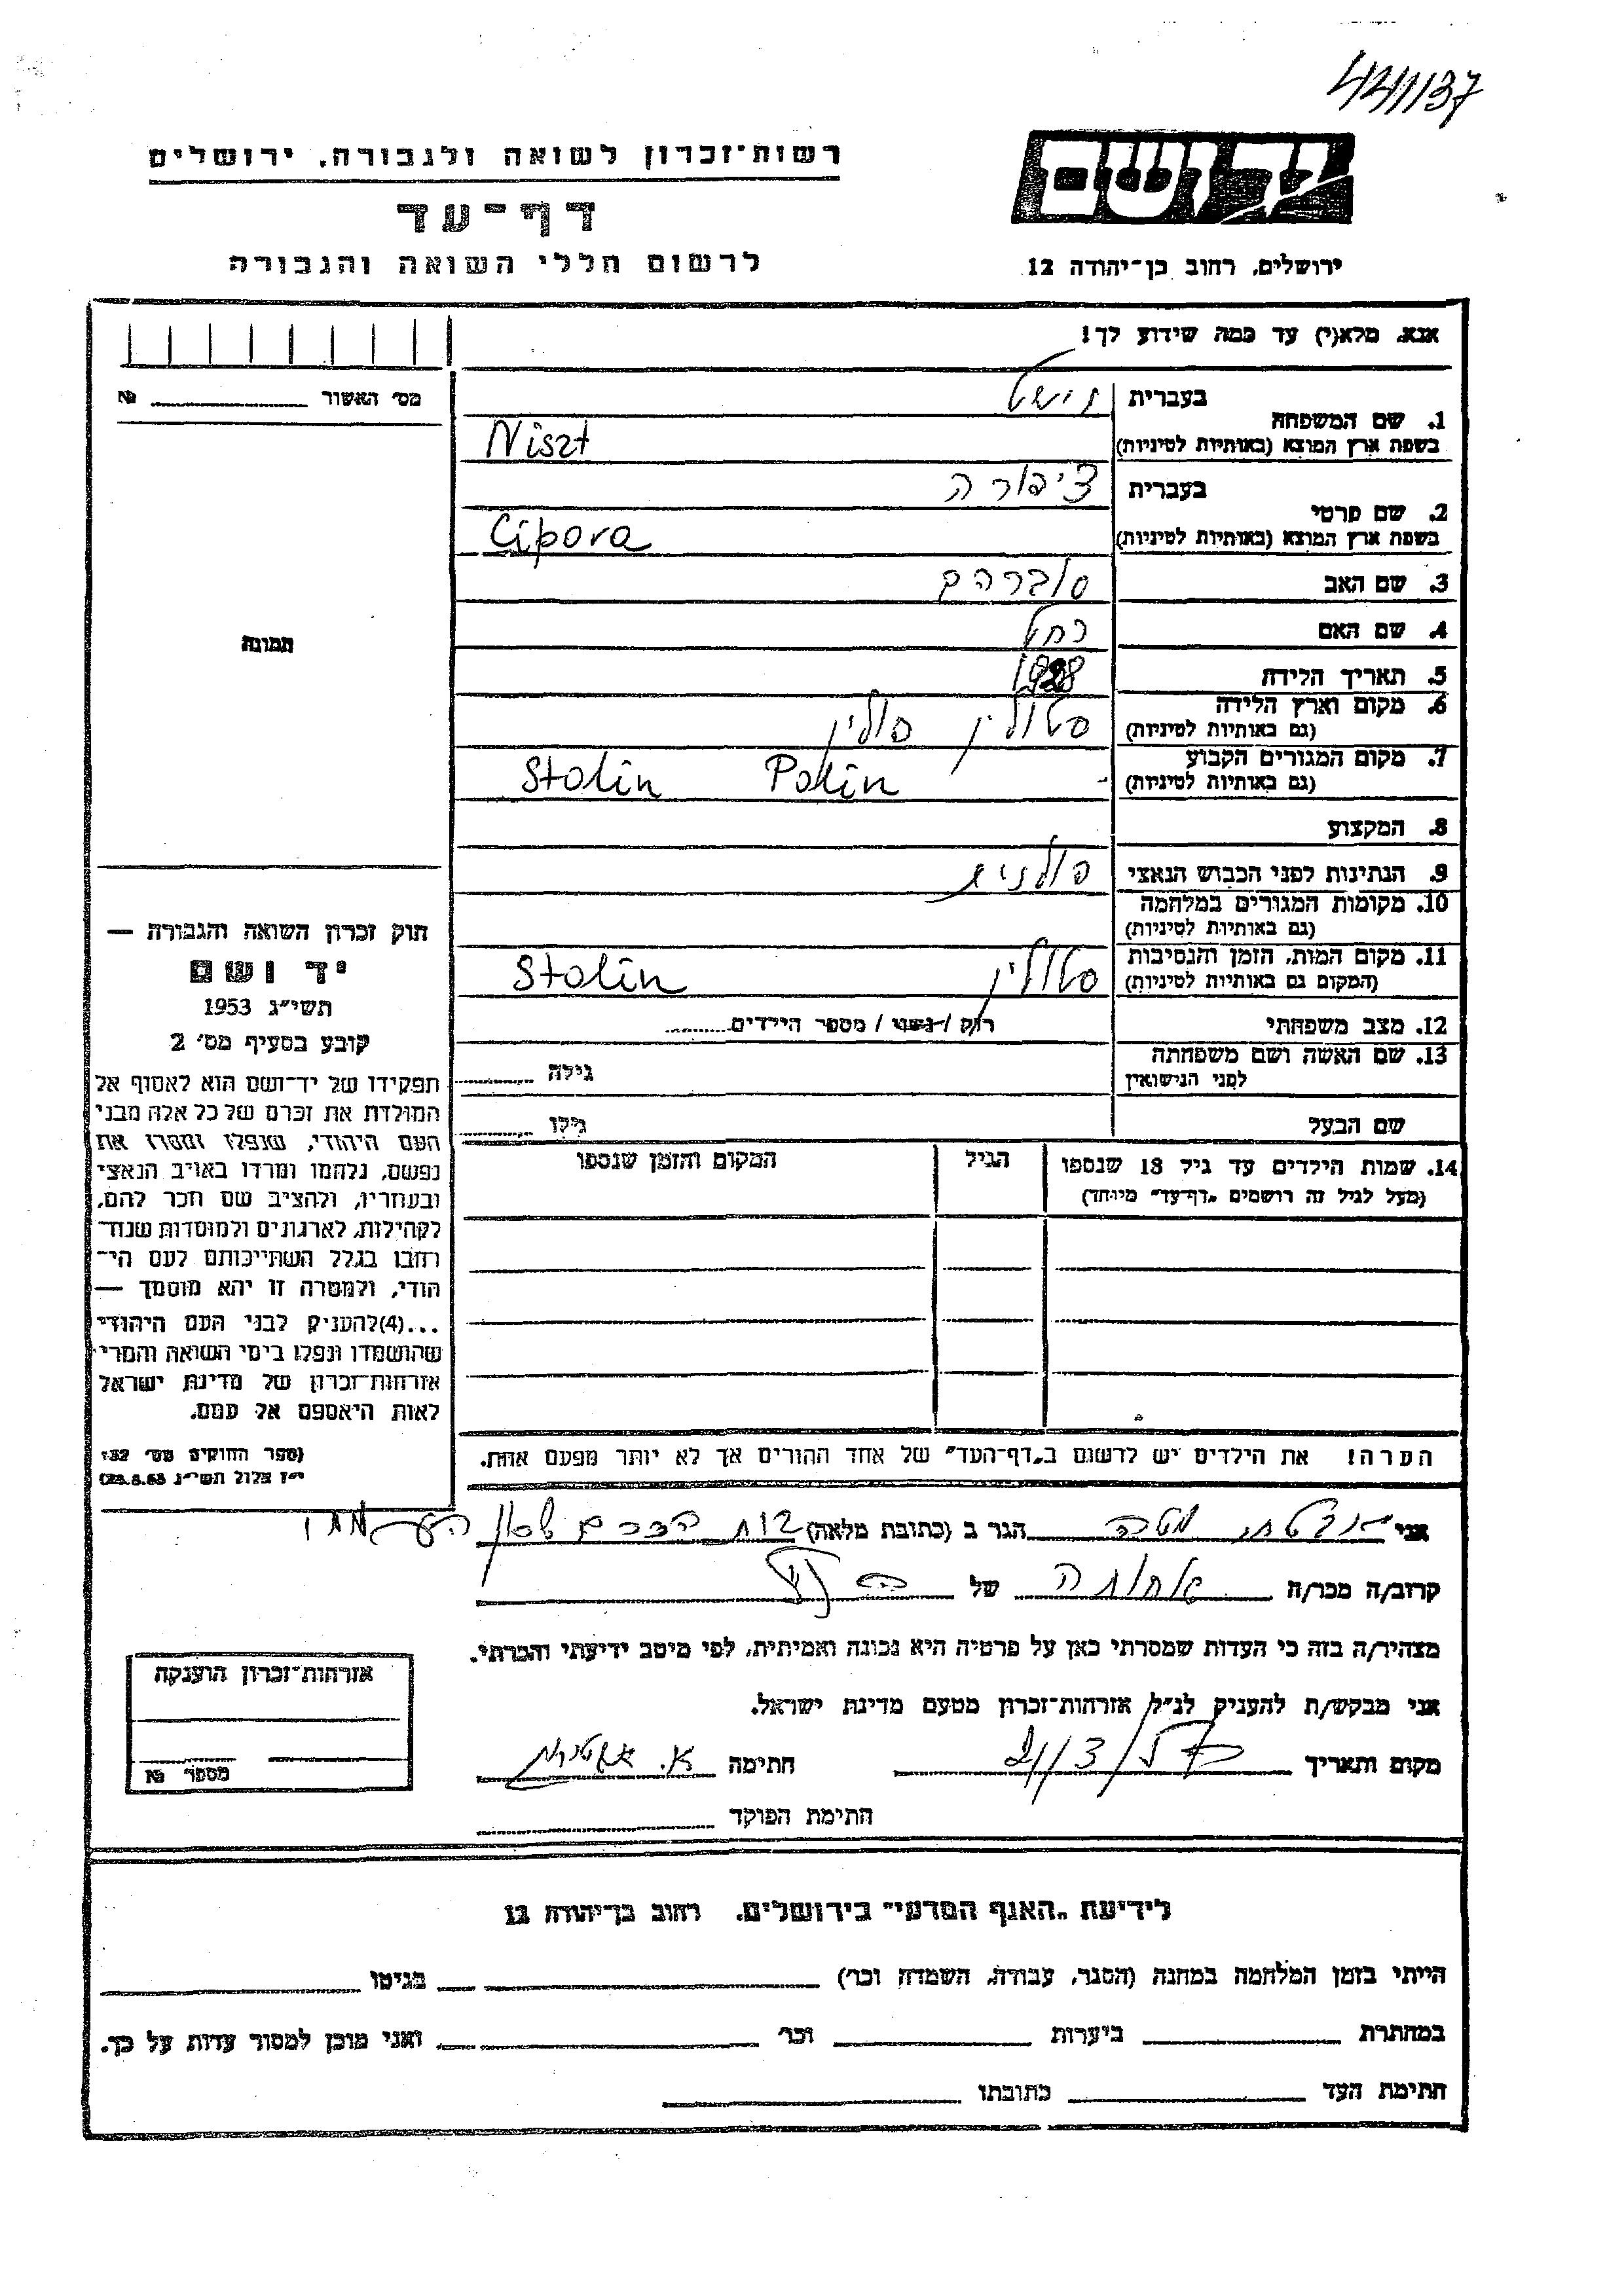 44/1137
רשות־זכרון לשואה ולגבורה, ירושלים
יד ושם
דף־עד
לרשום חללי השואה והגבורה
ירושלים, רחוב בן־יהודה 12
אנא, מלא(י) עד כמה שידוע לך!
מס׳ האשור № 
1. שם המשפחה
בעברית
בשפת ארץ המוצא (באותיות לטיניות)
Niszt
2. שם פרטי
בעברית ציפורה
בשפת ארץ המוצא (באותיות לטיניות)
Cipora
3. שם האב אברהם
4. שם האם רחל
5. תאריך הלידה 1928
6. מקום וארץ הלידה סטולין פולין
(גם באותיות לטיניות)
7. מקום המגורים הקבוע Stolin Polin
(גם באותיות לטיניות)
8. המקצוע
9. הנתינות לפני הכבוש הנאצי פולנית
10. מקומות המגורים במלחמה
(גם באותיות לטיניות)
11. מקום המות, הזמן והנסיבות סטולין Stolin
(המקום גם באותיות לטיניות)
12. מצב משפחתי רוק / נשוי / מספר הילדים
13. שם האשה ושם משפחתה
לפני הנישואין
גילה
שם הבעל גילו
14. שמות הילדים עד גיל 18 שנספו
(מעל לגיל זה רושמים „דף־עד״ מיוחד)
הגיל
המקום והזמן שנספו
תמונה
חוק זכרון השואה והגבורה —
יד ושם
תשי״ג 1953
קובע בסעיף מס׳ 2
תפקידו של יד־ושם הוא לאסוף אל
המולדת את זכרם של כל אלה מבני
העם היהודי, שנפלו ומסרו את
נפשם, נלחמו ומרדו באויב הנאצי
ובעוזריו, ולהציב שם וזכר להם,
לקהילות, לארגונים ולמוסדות שנח־
רבו בגלל השתייכותם לעם הי־
הודי, ולמטרה זו יהא מוסמך —
...(4)להעניק לבני העם היהודי
שהושמדו ונפלו בימי השואה והמרי
אזרחות־זכרון של מדינת ישראל
לאות היאספם אל עמם.
(ספר החוקים מס׳ 132
י״ז אלול תשי״ג 28.8.53)
הערה! את הילדים יש לרשום ב„דף־העד״ של אחד ההורים אך לא יותר מפעם אחת.
אני הגר ב (כתובת מלאה)
קרוב/ה מכר/ה אחותה של
מצהיר/ה בזה כי העדות שמסרתי כאן על פרטיה היא נכונה ואמיתית, לפי מיטב ידיעתי והכרתי.
אני מבקש/ת להעניק לנ״ל אזרחות־זכרון מטעם מדינת ישראל.
מקום ותאריך חתימה
חתימת הפוקד
אזרחות־זכרון הוענקה
מספר №
לידיעת „האגף המדעי״ בירושלים, רחוב בן־יהודה 12
הייתי בזמן המלחמה במחנה (הסגר, עבודה, השמדה וכו׳) בגיטו
במחתרת ביערות וכו׳ ואני מוכן למסור עדות על כך.
חתימת העד כתובתו